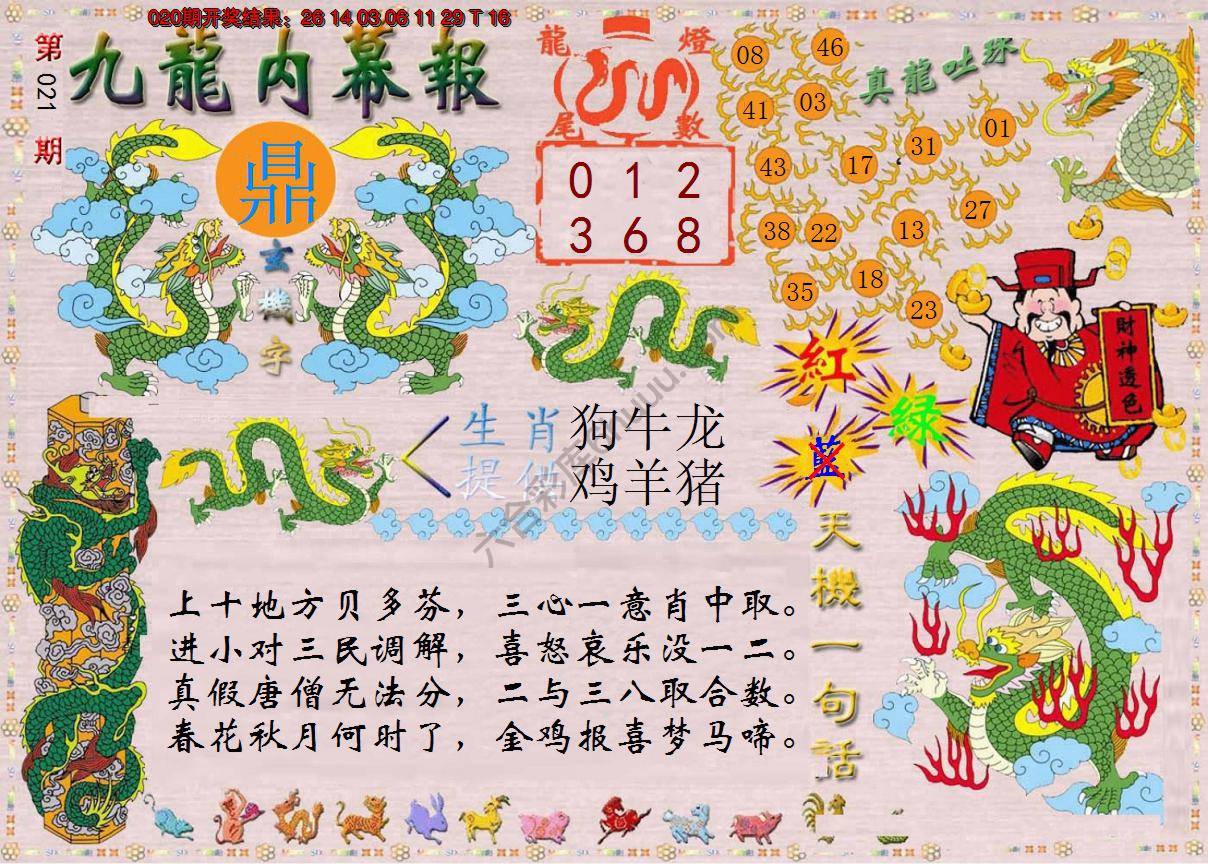 020期开奖结果：26 14 03 06 11 29 T 16
第021期
九龍内幕報
鼎
玄機字
龍燈
尾數
0 1 2
3 6 8
真龍吐珠
08 46
41 03
43 17 31 01
38 22 13 27
35 18 23
財神透色
紅
綠
藍
生肖提供
狗牛龙
鸡羊猪
天機一句話
上十地方贝多芬，三心一意肖中取。
进小对三民调解，喜怒哀乐没一二。
真假唐僧无法分，二与三八取合数。
春花秋月何时了，金鸡报喜梦马啼。